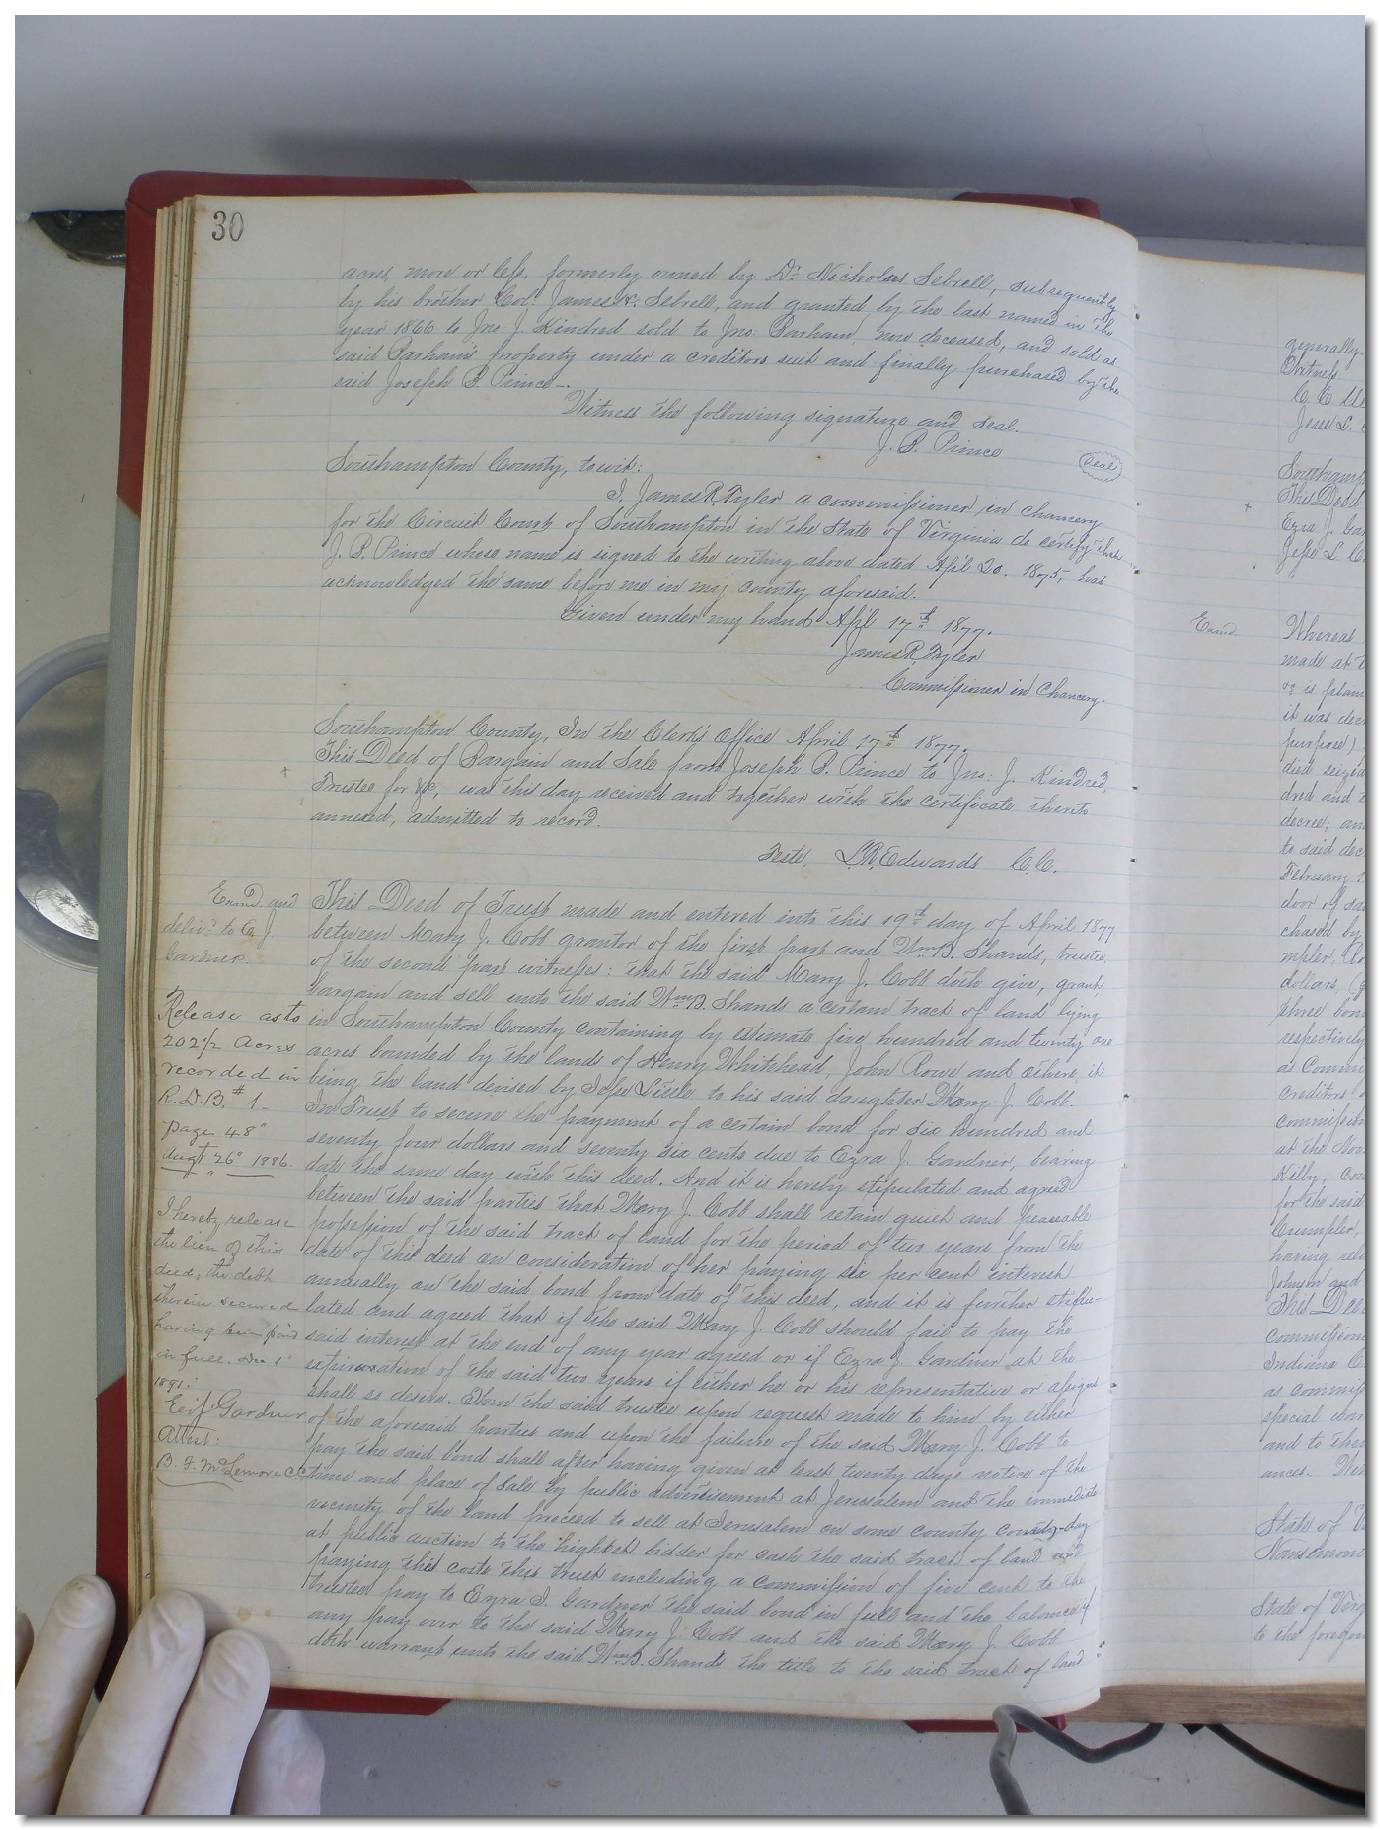 30
acres, more or less, formerly owned by Dr. Nicholas Sebrell, subsequently
by his brother Col. James Sebrell, and granted by the last named in the
year 1866 to Jno J. Kindred sold to Jno: Parham, now deceased, and sold as
said Parham's property under a creditors suit and finally purchased by the
said Joseph B. Prince.
Witness the following signature and seal.
J. B. Prince
Seal
Southampton County, to wit:
I, James R. Tyler a commissioner in chancery
for the Circuit Court of Southampton in the State of Virginia do certify that
J. B. Prince whose name is signed to the writing above dated Apl 20. 1875, has
acknowledged the same before me in my county aforesaid.
Given under my hand Apl 17th 1877.
James R. Tyler
Commissioner in Chancery.
Southampton County, In the Clerk's Office April 17th 1877.
This Deed of Bargain and Sale from Joseph B. Prince to Jno: J. Kindred,
Trustee for &c, was this day received and together with the certificate thereto
annexed, admitted to record.
Teste, L. R. Edwards C. C.
Exmd. and
deliv'd to E J
Gardner.
This Deed of Trust made and entered into this 19th day of April 1877
between Mary J. Cobb grantor of the first part and Wm B. Shands, trustee
of the second part witness: that the said Mary J. Cobb doth give, grant
bargain and sell unto the said Wm B. Shands a certain track of land lying
in Southampton County containing by estimate five hundred and twenty one
acres bounded by the lands of Henry Whitehead, John Rowe and others, it
being the land devised by Jesse Little to his said daughter Mary J. Cobb.
In Trust to secure the payment of a certain bond for six hundred and
seventy four dollars and seventy six cents due to Ezra J. Gardner, bearing
date the same day with this deed. And it is hereby stipulated and agreed
between the said parties that Mary J. Cobb shall retain quiet and peaceable
possession of the said track of land for the period of two years from the
date of this deed on consideration of her paying six per cent interest
annually on the said bond from date of this deed, and it is further stipu-
lated and agreed that if the said Mary J. Cobb should fail to pay the
said interest at the end of any year agreed or if Ezra J. Gardner at the
expiration of the said two years if either he or his representative or assigns
shall so desire. Then the said trustee upon request made to him by either
of the aforesaid parties and upon the failure of the said Mary J. Cobb to
pay the said bond shall after having given at least twenty days notice of the
time and place of sale by public advertisement at Jerusalem and the immediate
vicinity of the land proceed to sell at Jerusalem on some county county-day
at public auction to the highest bidder for cash the said track of land and
paying the costs this trust including a commission of five cent to the
trustee pay to Ezra J. Gardner the said bond in full and the balance if
any pay over to the said Mary J. Cobb and the said Mary J. Cobb
doth warrant unto the said Wm B. Shands the title to the said track of land
Release as to
202 1/2 Acres
recorded in
R. D. B. # 1
page 48
Augt 26 1886.
I hereby release
the lien of this
deed, the debt
therein secured
having been paid
in full. Dec 1
1891.
E. J. Gardner
Attest:
B. F. McLemore C.C.
generally.
Witness
Jesse L.
Southamp
This Deed
Ezra J. Gar
Jesse L. C
Exmd.
Whereas
made at t
it was dec
purpose)
died seized
dred and
decree, an
to said dec
February
door of sa
chased by
dollars, (
three bon
respectively
as Comm
creditors
commissio
at the Nov
Kilby, com
for the said
Crumpler,
having reli
Johnson and
This Deed
commission
Indiana
as commiss
special com
and to them
ances.
State of V
Nansemond
State of Virg
to the foregoin